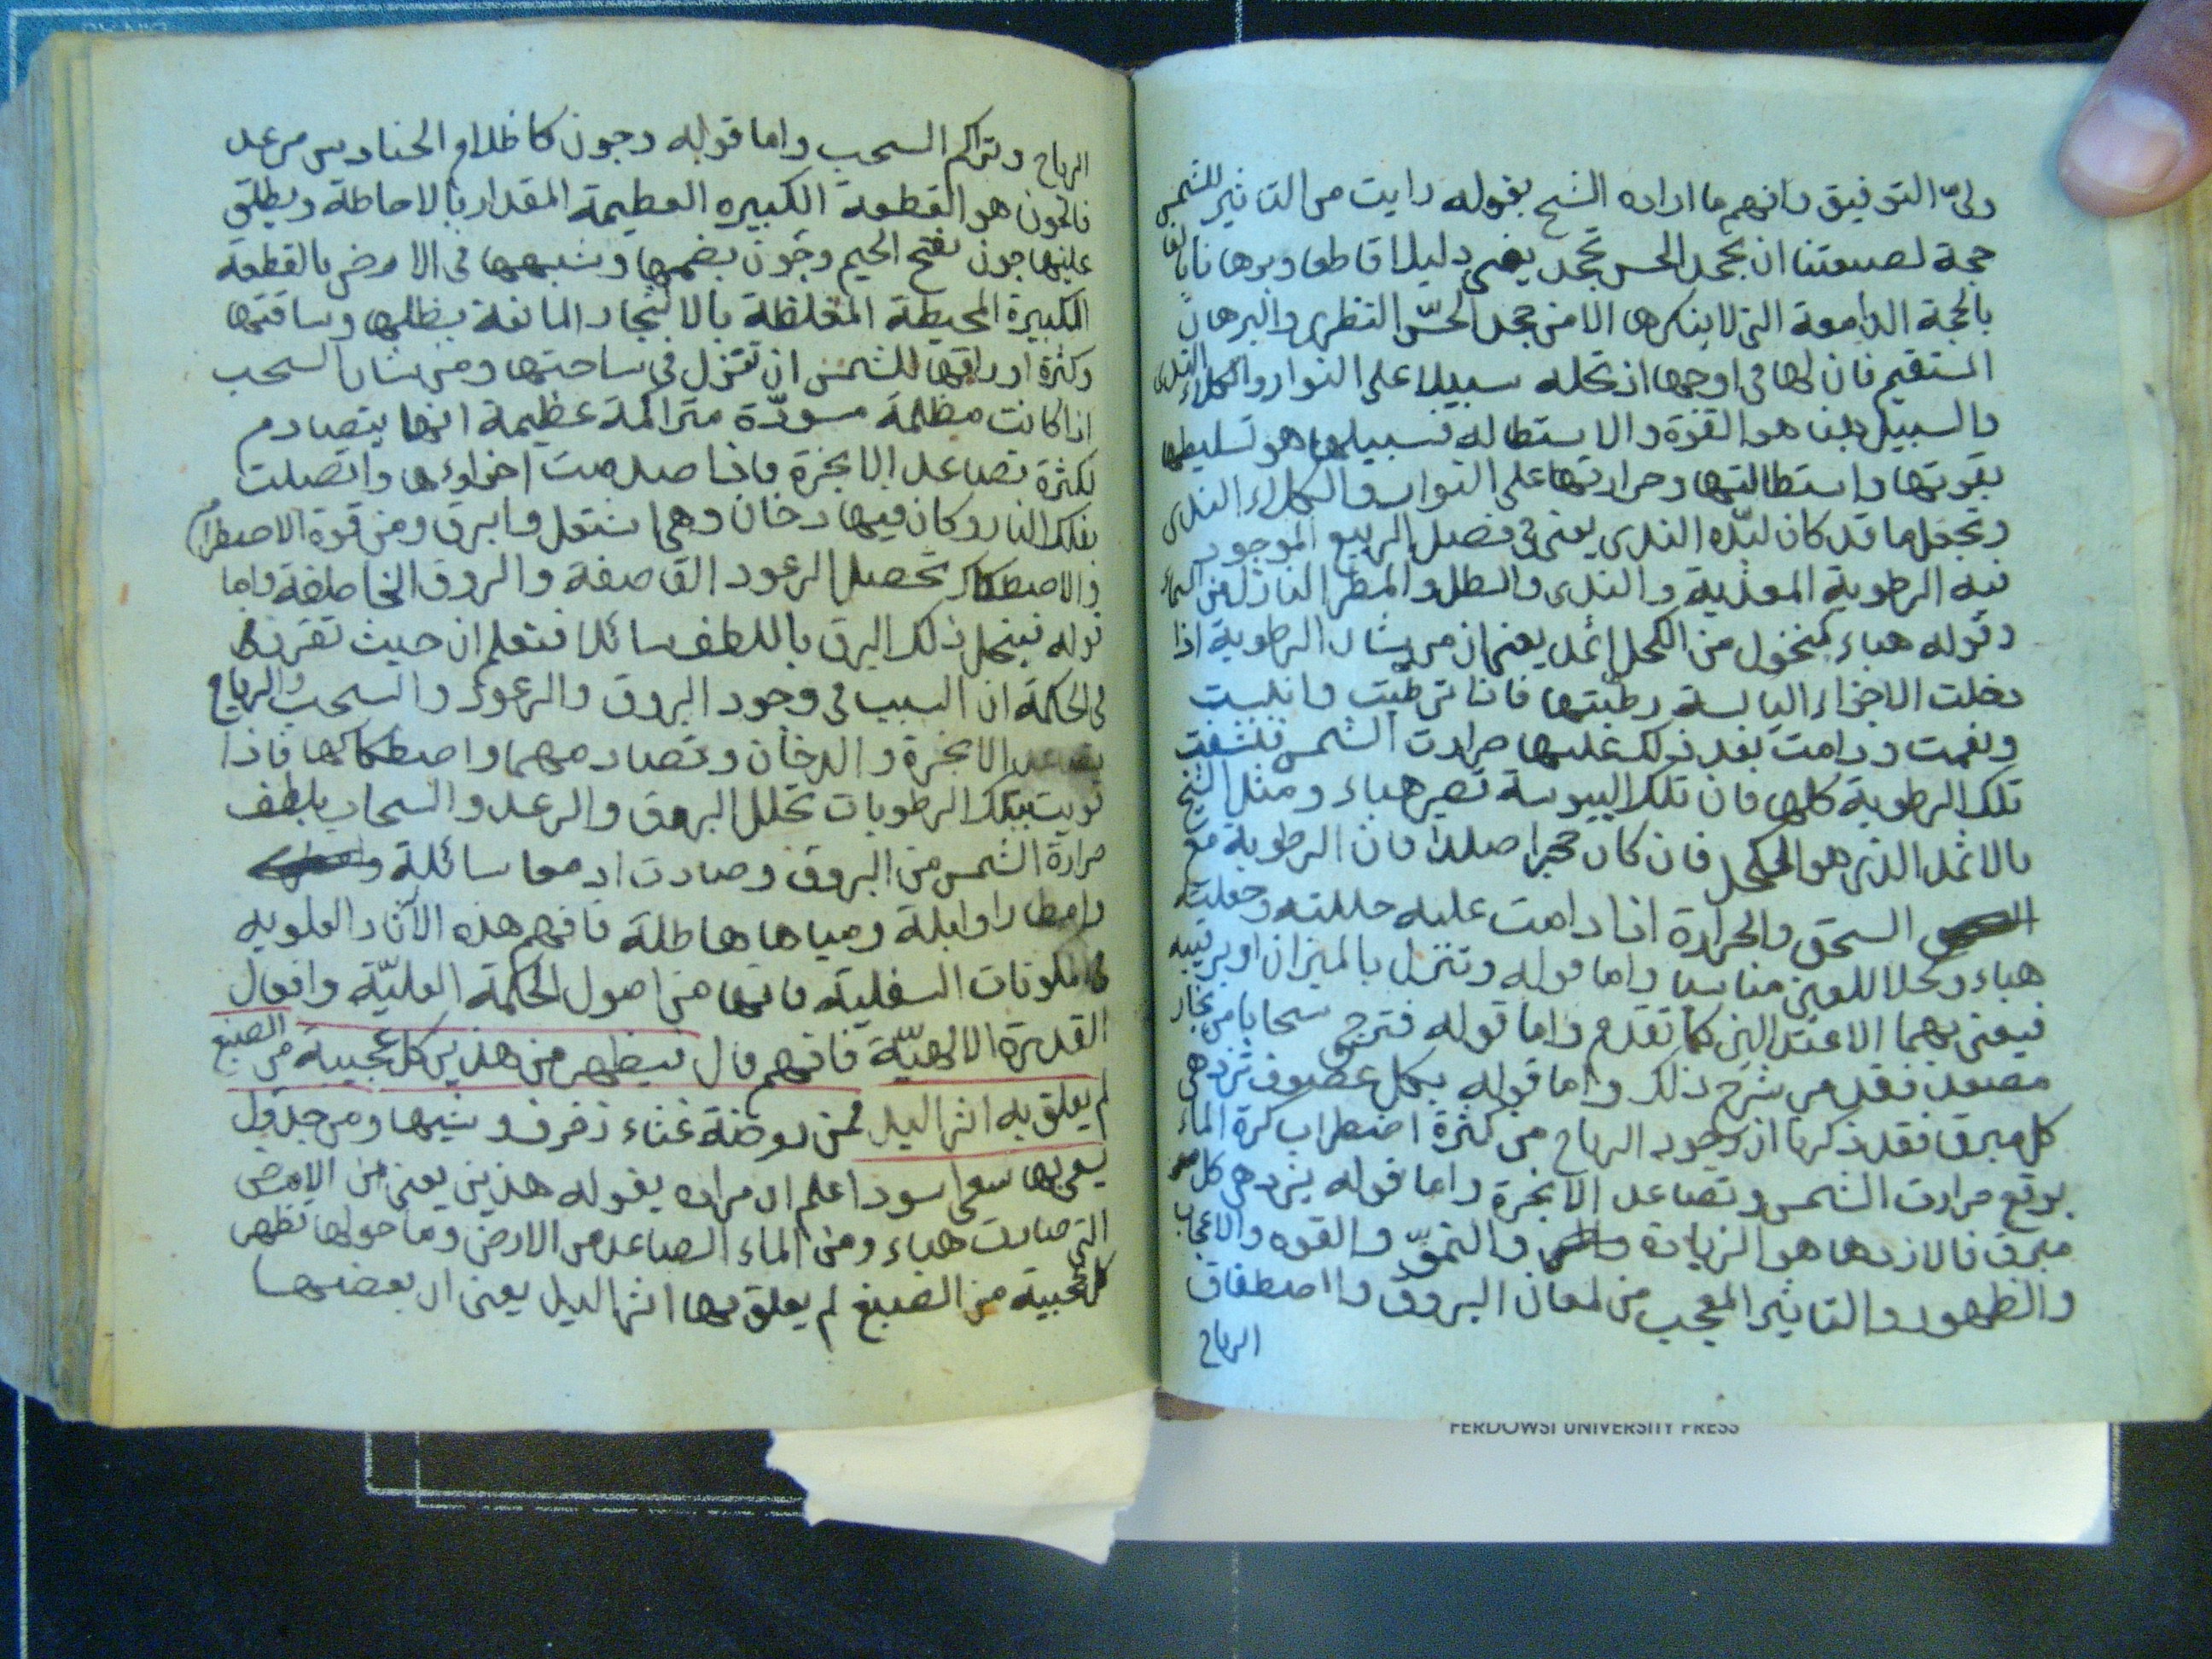 ولىّ التوفيق وافهم ما اراده الشيخ بقوله رايت من التاثير للشمس
حجة لصنعتنا ان يجحد الحس تجحد يعنى دليلا قاطعا وبرهانا بالغا
بالحجة الدامغة التى لا ينكرها الا من جحد الحسّ النظرى والبرهان
المستقيم فان لها فى اوجها اذ تحله سبيلا على النوار والكلاء الندى
والسبيل هنا هو القوة والاستطالة فسبيلها هو تسليطها
بقوتها واستطالتها وحرارتها على النوار والكلاء الندى
وتجفل ما قد كان لبّده الندى يعنى فى فصل الربيع الموجود
فيه الرطوبة المغذية والندى والطل والمطر النازل من السماء
وقوله هباء كمنخول من الكحل اثمد يعنى ان من شان الرطوبة اذا
دخلت الاجزاء اليابسة رطبتها فاذا ترطبت وانلبت
ونعمت ودامت بعد ذلك عليها حرارت الشمس فنشفت
تلك الرطوبة كلها فان تلك اليبوسة تصير هباء ومثل الشيخ
بالاثمد الذى هو الكحل فان كان حجرا صلدا فان الرطوبة مع
السحق والحرارة اذا دامت عليه حللته وجعلته
هباء وكحلا للعين مناسبا واما قوله وتنزل بالميزان او برقيبه
فيعنى بهما الاعتدالين كما تقدم واما قوله فتزجى سحابا من بخار
مصعد فقد مر شرح ذلك واما قوله بكل عصوف تزدهى
كل مبرق فقد ذكرنا ان وجود الرياح من كثرة اضطراب كرة الماء
بوقع حرارت الشمس وتصاعد الابخرة واما قوله يزدهى كل
مبرق فالازدها هو الزيادة والنموّ والقوه والاعجاب
والظهور والتاثير المعجب من لمعان البروق واصطفاق
الرياح
الرياح وتراكم السحب واما قوله وجون كاظلام الحنادس مرعد
فالجون هو القطعة الكبيره العظيمة المقدار بالاحاطة ويطلق
عليها جون بفتح الجيم وجُون بضمها وشبهها فى الارض بالقطعة
الكبيرة المحيطة المغلظة بالاشجار المانعة بظلها وساقتها
وكثرة اوراقها للشمس ان تنزل فى ساحتها ومن شان السحب
اذا كانت مظلمة مسودّة متراكمة عظيمة انها يتصادم
لكثرة تصاعد الابخرة فاذا صدمت اجزاؤها واتصلت
بفلك النار وكان فيها دخان وهى اشتعل وابرق ومن قوة الاصطدام
والاصطكاك تحصل الرعود القاصفة والبروق الخاطفة واما
قوله فينحل ذلك البرق باللطف سائلا فتعلم ان حيث تقرر لك
فى الحكمة ان السبب فى وجود البروق والرعود والسحب والرياح
تصاعد الابخرة والدخان وتصادمهما واصطكاكها فاذا
قويت بتلك الرطوبات تحلل البروق والرعد والسحاب بلطف
حرارة الشمس من البروق وصارت ادمعا سائلة
وامطارا وابلة ومياها هاطلة فافهم هذه الآثار العلويه
فى المكونات السفلية فانها من اصول الحكمة العليّة وافعال
القدرة الالهيّة فافهم قال فيظهر من هذين كل عجيبة من الصبغ
لم يعلق به اثر اليد فمن روضة غناء زخرف وشيها ومن جدول
يعيى بها سعى اسود اعلم ان مراده بقوله هذين يعنى من الارض
التى صارت هباء ومن الماء الصاعد من الارض وما حولها تظهر
كل عجيبة من الصبغ لم يعلق بها اثر اليد يعنى ان بعضها
FERDOWSI UNIVERSITY PRESS